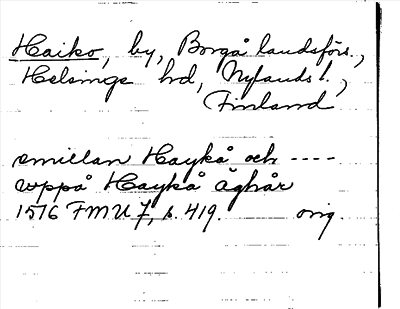 Haiko, by, Borgå landsförs.,
Helsinge hd, Nylands l.,
Finland
emillan Haykå och ----
vppå Haykå ághår
1516 FMU 7, s. 419. orig.